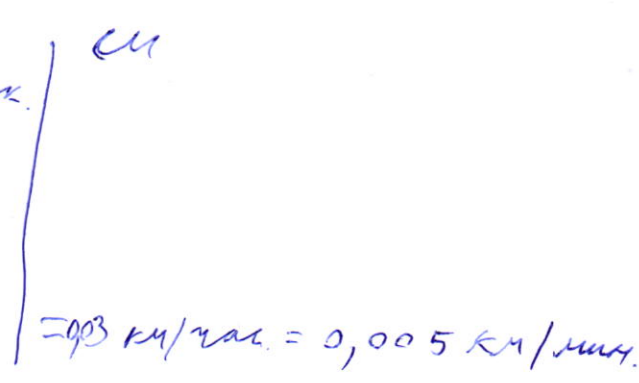 см
к.
=0,03 км/час. = 0,005 км/мин.